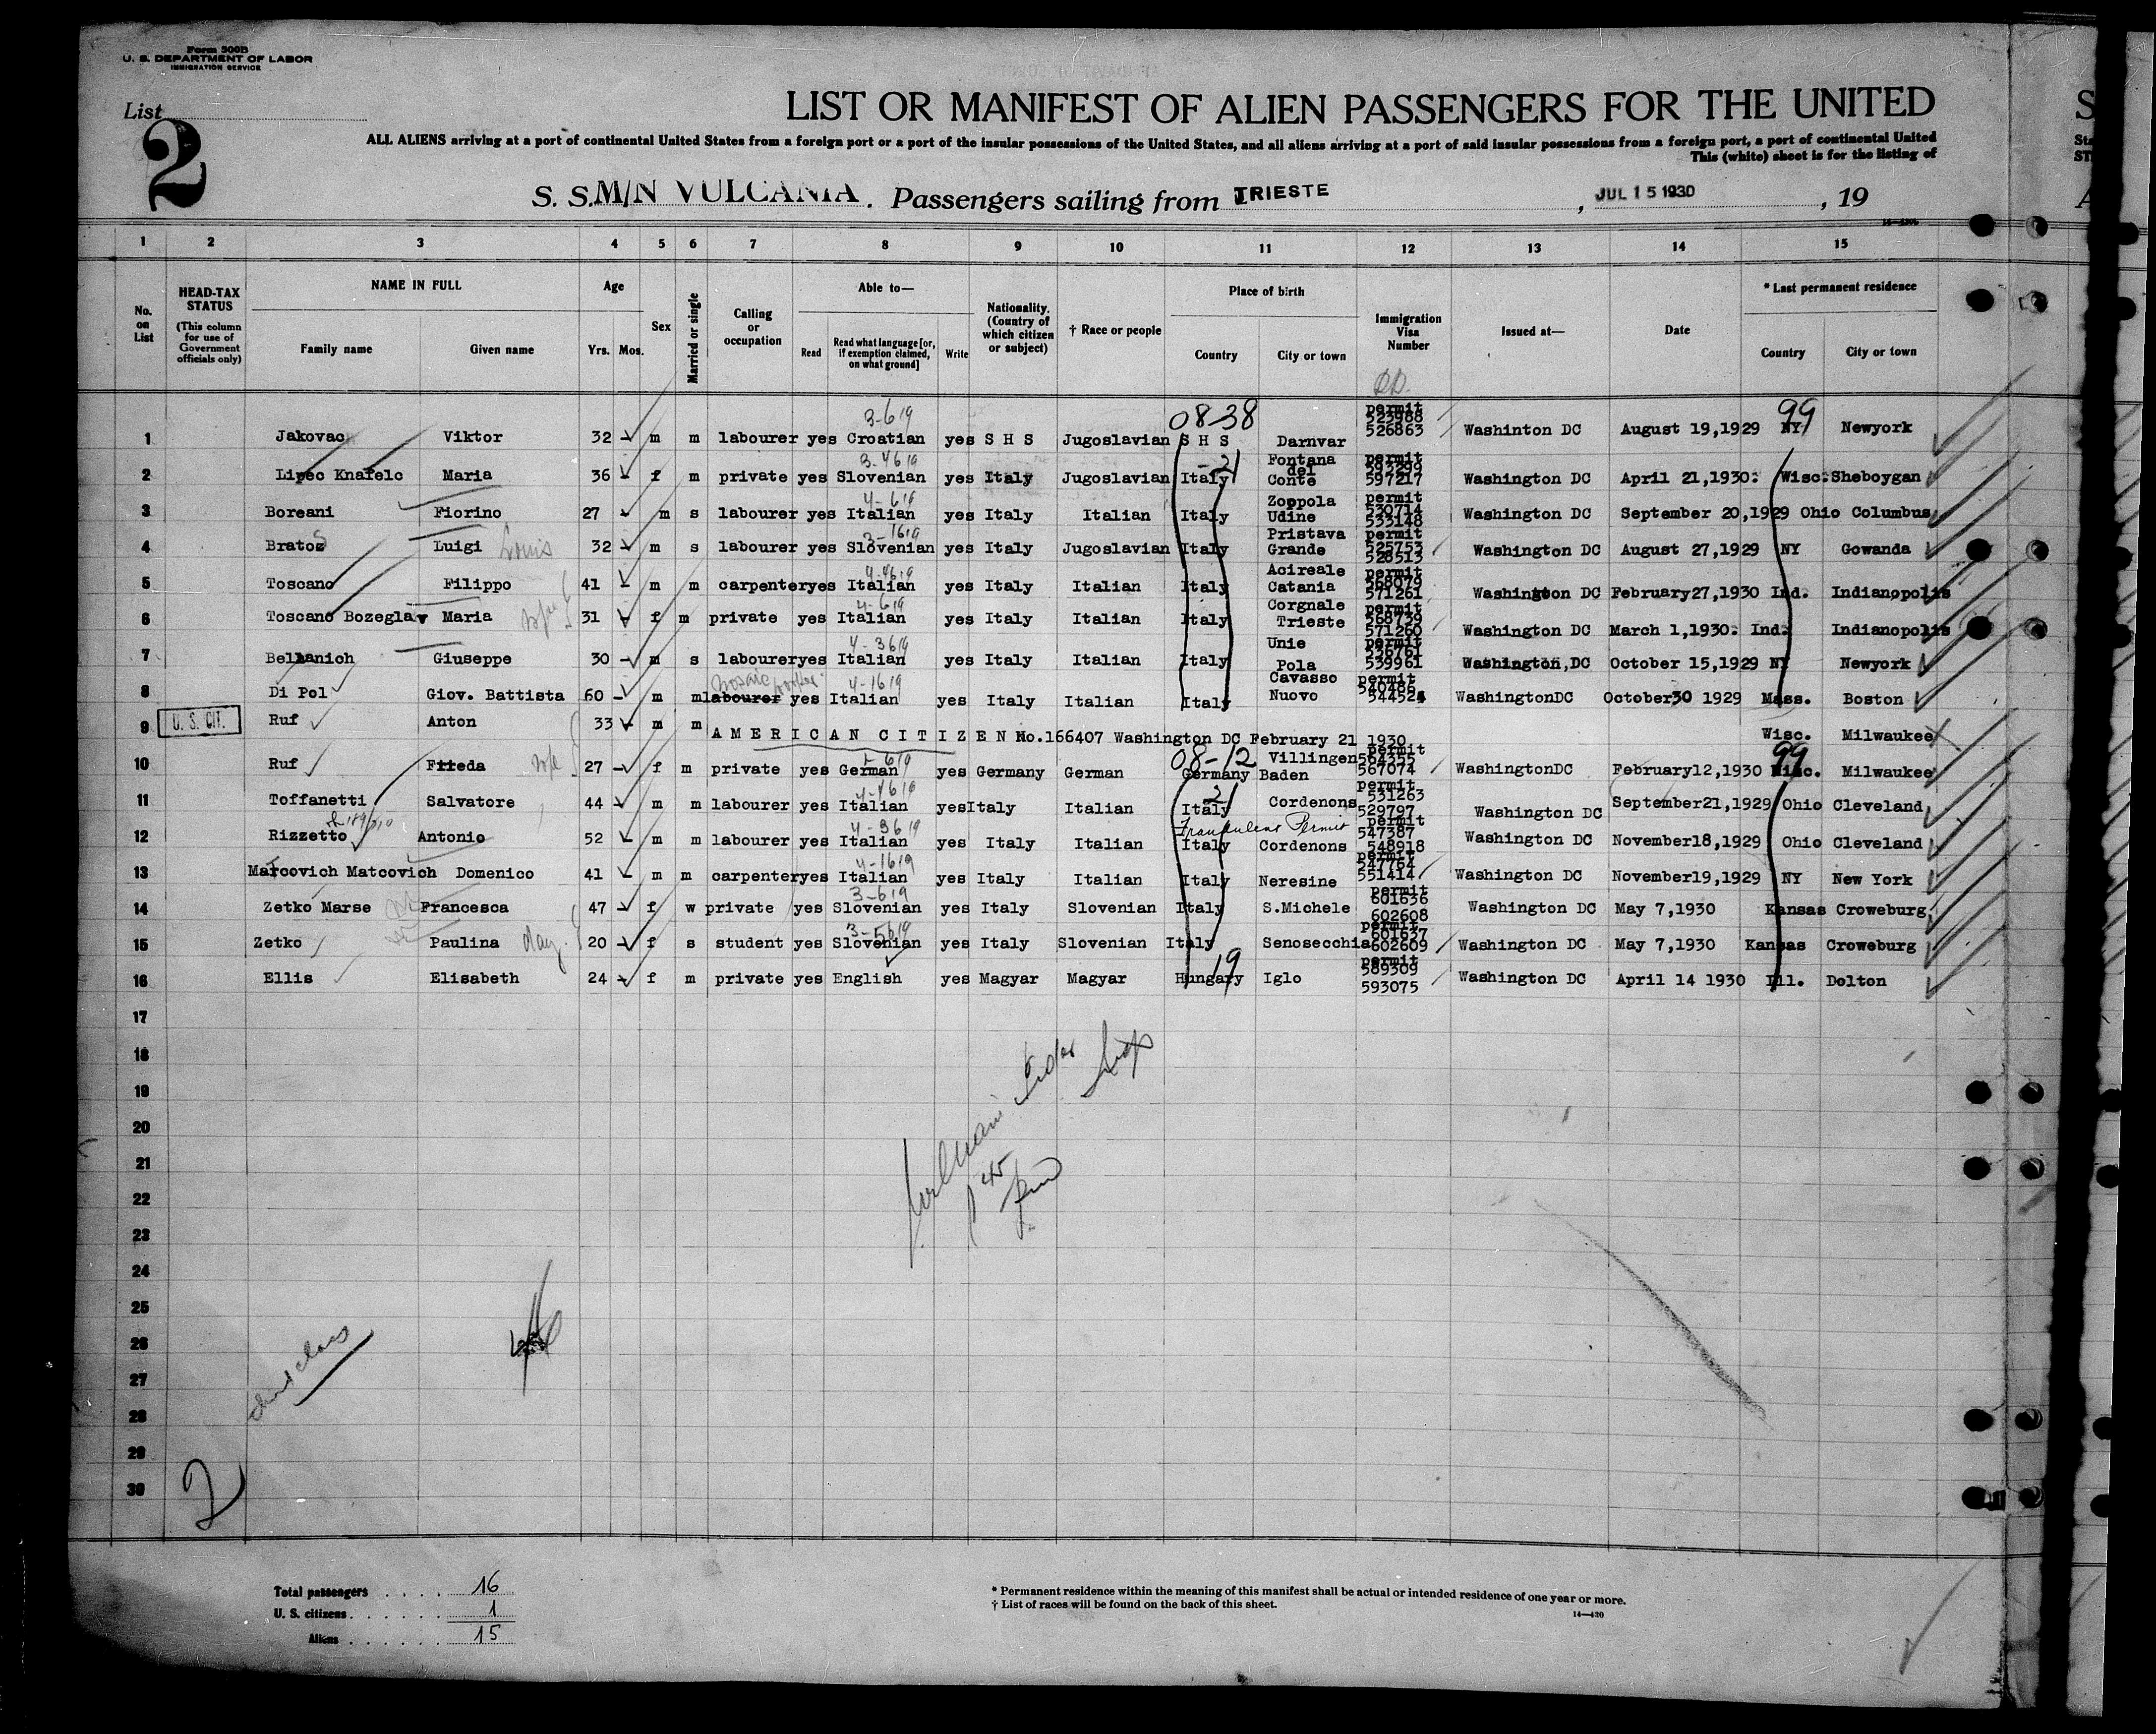 Form 500B
U. S. DEPARTMENT OF LABOR
IMMIGRATION SERVICE
List
2
LIST OR MANIFEST OF ALIEN PASSENGERS FOR THE UNITED
ALL ALIENS arriving at a port of continental United States from a foreign port or a port of the insular possessions of the United States, and all aliens arriving at a port of said insular possessions from a foreign port, a port of continental United
This (white) sheet is for the listing of
S. S. M/N VULCANIA. Passengers sailing from TRIESTE, JUL 15 1930, 19
1 2 3 4 5 6 7 8 9 10 11 12 13 14 15
No. on List
HEAD-TAX STATUS (This column for use of Government officials only)
NAME IN FULL
Family name Given name
Age
Yrs. Mos.
Sex
Married or single
Calling or occupation
Able to—
Read Read what language [or, if exemption claimed, on what ground] Write
Nationality. (Country of which citizen or subject)
† Race or people
Place of birth
Country City or town
Immigration Visa Number
Issued at—
Date
* Last permanent residence
Country City or town
08-38 99
3-619
1 Jakovac Viktor 32 m m labourer yes Croatian yes S H S Jugoslavian S H S Darnvar permit 523988 526863 Washinton DC August 19,1929 NY Newyork
2 Lipec Knafelc Maria 36 f m private yes Slovenian yes Italy Jugoslavian Italy Fontana del Conte permit 593299 597217 Washington DC April 21,1930. Wisc. Sheboygan
3 Boreani Fiorino 27 m s labourer yes Italian yes Italy Italian Italy Zoppola Udine permit 530714 533148 Washington DC September 20,1929 Ohio Columbus
4 Bratos Luigi Louis 32 m s labourer yes Slovenian yes Italy Jugoslavian Italy Pristava Grande permit 525753 528513 Washington DC August 27,1929 NY Gowanda
5 Toscano Filippo 41 m m carpenter yes Italian yes Italy Italian Italy Acireale Catania permit 568079 571261 Washington DC February27,1930 Ind. Indianopolis
6 Toscano Bozeglav Maria wife 31 f m private yes Italian yes Italy Italian Italy Corgnale Trieste permit 568739 571260 Washington DC March 1,1930. Ind. Indianopolis
7 Bellanich Giuseppe 30 m s labourer yes Italian yes Italy Italian Italy Unie Pola permit 536761 539961 Washington,DC October 15,1929 NY Newyork
8 Di Pol Giov. Battista 60 m m labourer yes Italian yes Italy Italian Italy Cavasso Nuovo permit 540486 544524 WashingtonDC October30 1929 Mass. Boston
U. S. CIT.
9 Ruf Anton 33 m m AMERICAN CITIZEN No.166407 Washington DC February 21 1930 Wisc. Milwaukee
08-12 99
10 Ruf Frieda wife 27 f m private yes German yes Germany German Germany Villingen Baden permit 564355 567074 WashingtonDC February12,1930 Wisc. Milwaukee
11 Toffanetti Salvatore 44 m m labourer yes Italian yes Italy Italian Italy Cordenons permit 531263 529797 Washington DC September21,1929 Ohio Cleveland
Fraudulent Permit
12 Rizzetto Antonio 52 m m labourer yes Italian yes Italy Italian Italy Cordenons permit 547387 548918 Washington DC November18,1929 Ohio Cleveland
13 Marcovich Matcovich Domenico 41 m m carpenter yes Italian yes Italy Italian Italy Neresine permit 547764 551414 Washington DC November19,1929 NY New York
14 Zetko Marse Francesca 47 f w private yes Slovenian yes Italy Slovenian Italy S.Michele permit 601636 602608 Washington DC May 7,1930 Kansas Croweburg
15 Zetko Paulina 20 f s student yes Slovenian yes Italy Slovenian Italy Senosecchia permit 601637 602609 Washington DC May 7,1930 Kansas Croweburg
16 Ellis Elisabeth 24 f m private yes English yes Magyar Magyar Hungary Iglo permit 589309 593075 Washington DC April 14 1930 Ill. Dolton
17
18
19
20
21
22
23
24
25
26
27
28
29
30
2
Total passengers 16
U. S. citizens 1
Aliens 15
* Permanent residence within the meaning of this manifest shall be actual or intended residence of one year or more.
† List of races will be found on the back of this sheet.
14—420